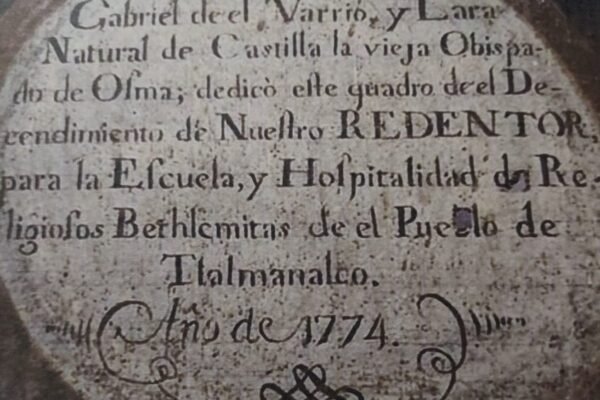 Gabriel de el Varrio, y Lara
Natural de Castilla la vieja Obispa-
do de Osma; dedicò este quadro de el De-
cendimiento de Nuestro REDENTOR,
para la Escuela, y Hospitalidad de Re-
ligiosos Bethlemitas de el Pueblo de
Tlalmanalco.
Año de 1774.